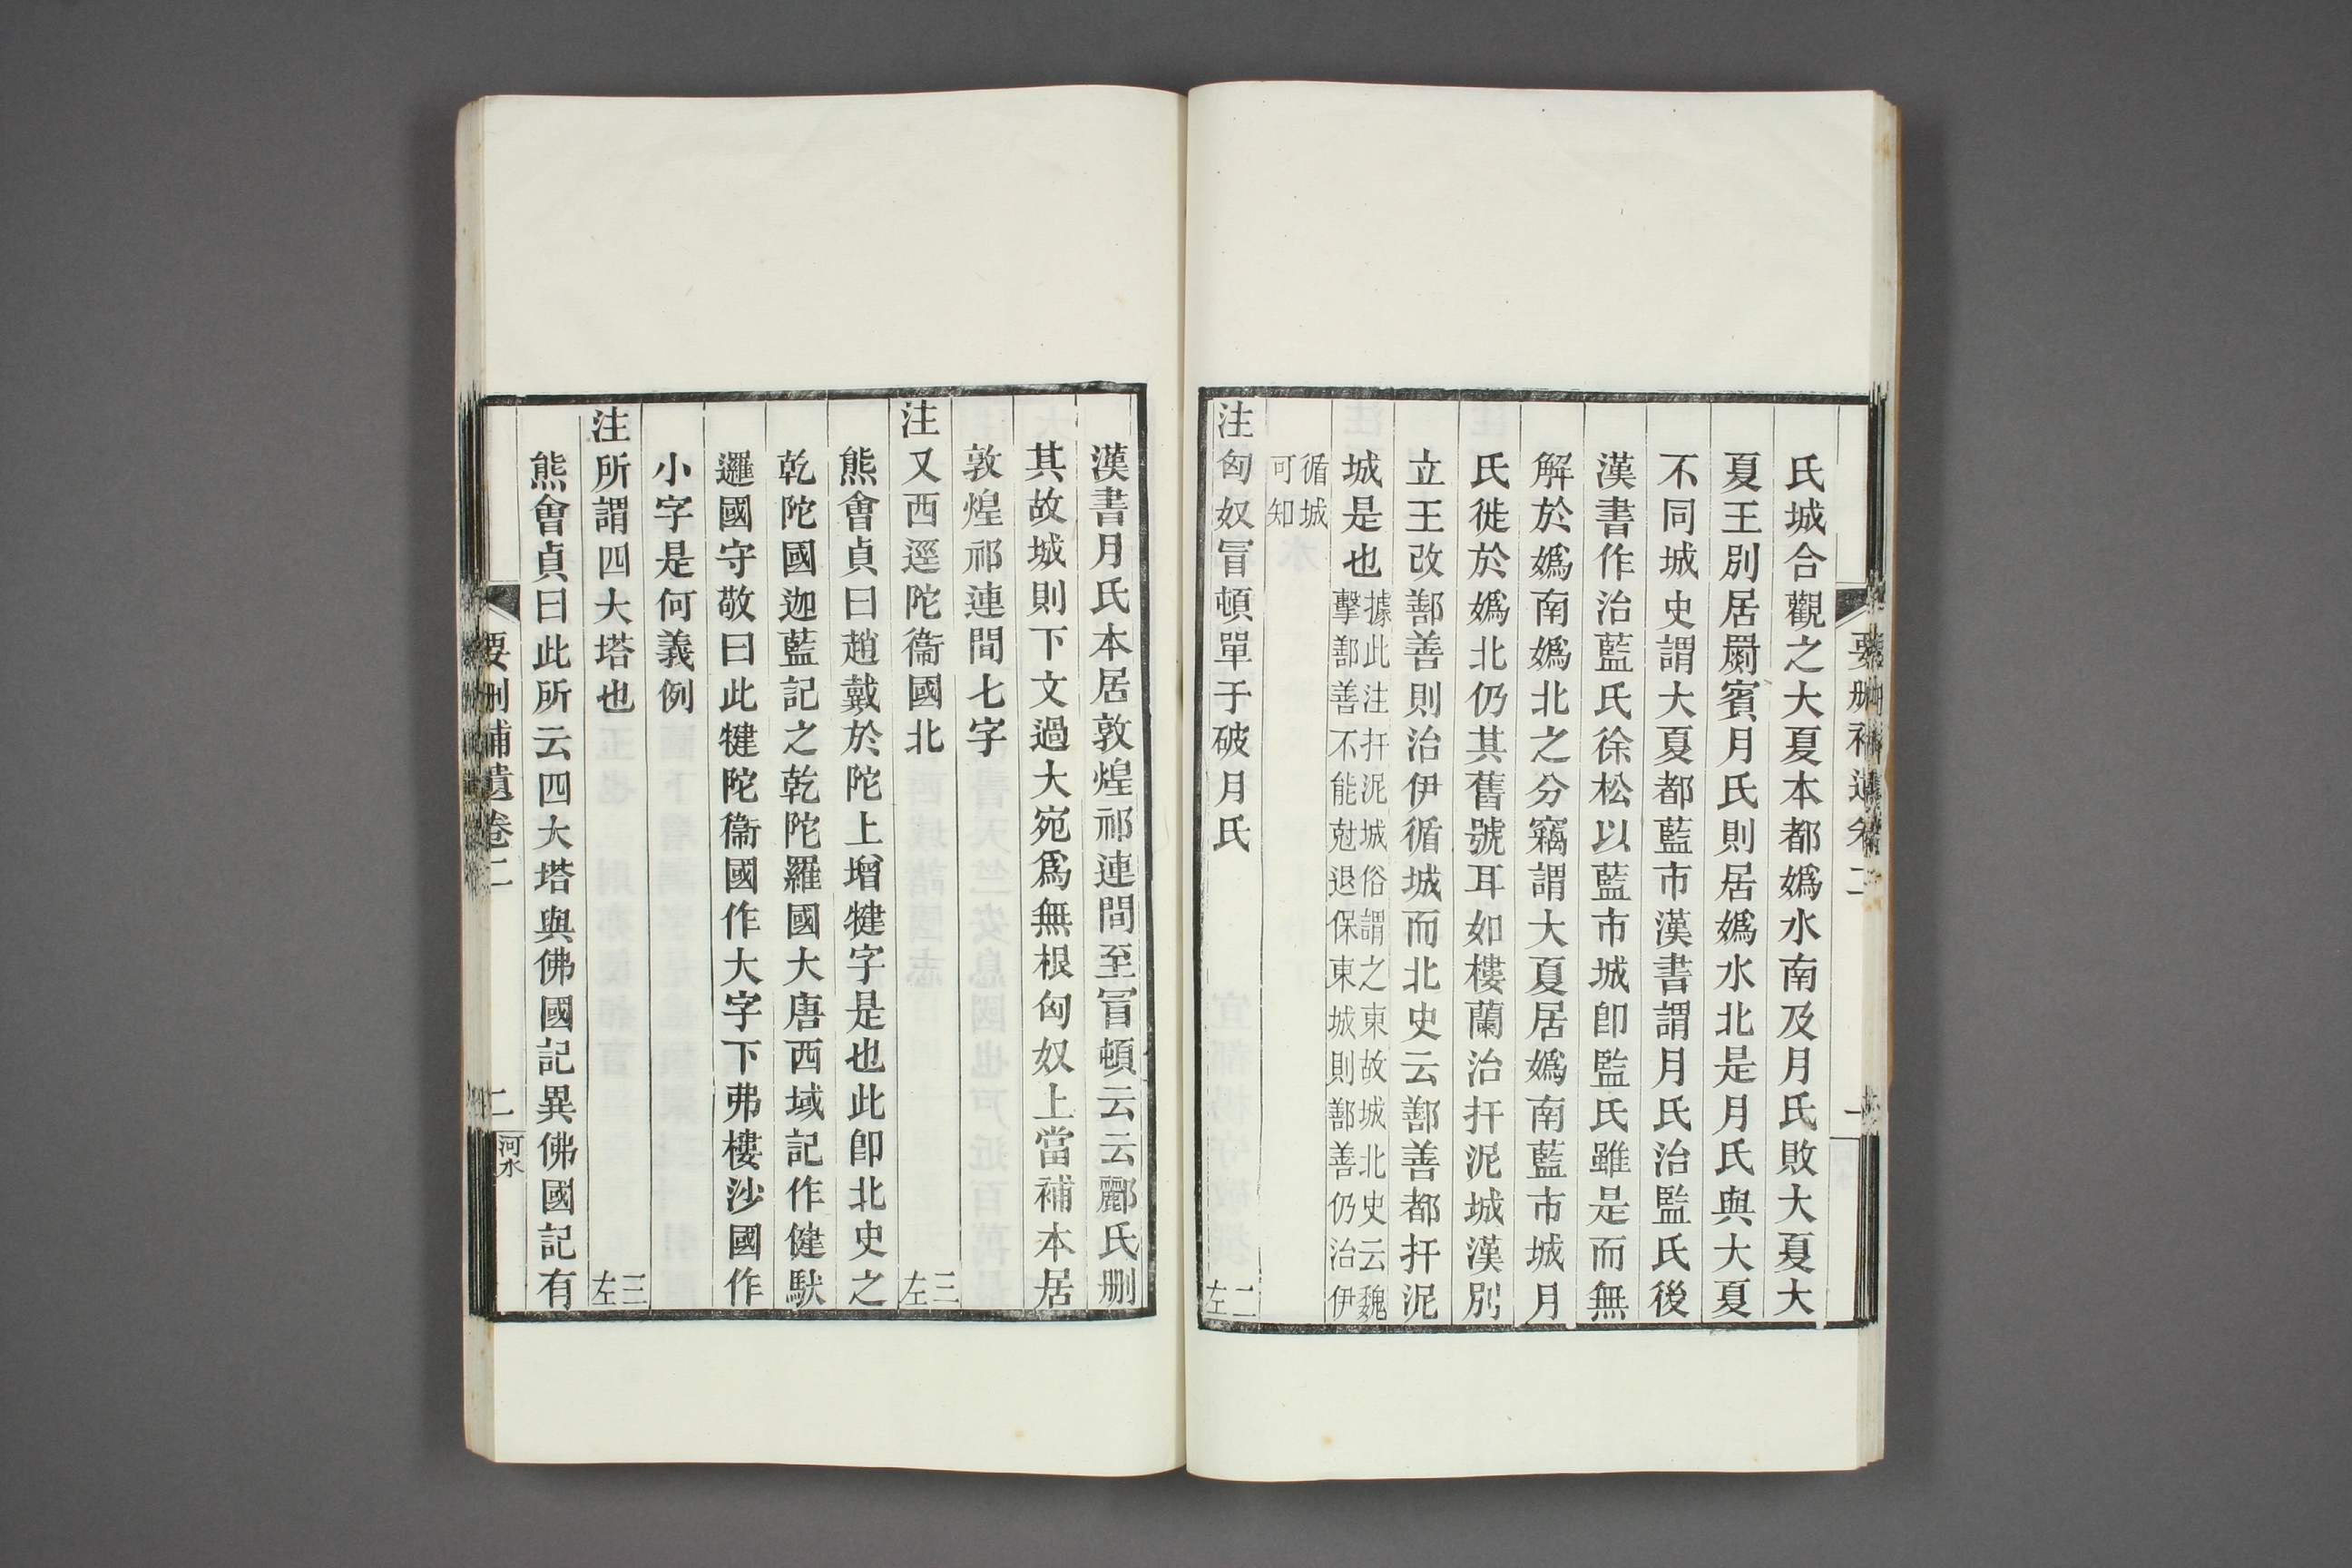 氏城合觀之大夏本都嬀水南及月氏敗大夏大
夏王別居罽賓月氏則居嬀水北是月氏與大夏
不同城史謂大夏都藍市漢書謂月氏治監氏後
漢書作治藍氏徐松以藍市城卽監氏雖是而無
解於嬀南嬀北之分竊謂大夏居嬀南藍市城月
氏徙於嬀北仍其舊號耳如樓蘭治扞泥城漢別
立王改鄯善則治伊循城而北史云鄯善都扞泥
城是也據此注扞泥城俗謂之東故城北史云魏
擊鄯善不能尅退保東城則鄯善仍治伊
循城
可知
注匈奴冒頓單于破月氏 二左
漢書月氏本居敦煌祁連間至冒頓云云酈氏删
其故城則下文過大宛爲無根匈奴上當補本居
敦煌祁連間七字
注又西逕陀衞國北 三左
熊會貞曰趙戴於陀上增犍字是也此卽北史之
乾陀國迦藍記之乾陀羅國大唐西域記作健馱
邏國守敬曰此犍陀衞國作大字下弗樓沙國作
小字是何義例
注所謂四大塔也 三左
熊會貞曰此所云四大塔與佛國記異佛國記有
要删補遺卷二
二
河水